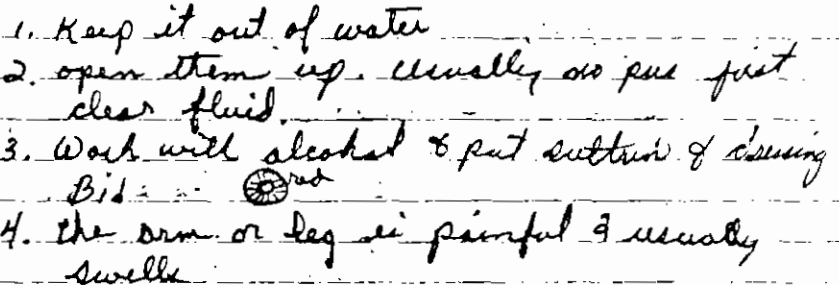 1. Keep it out of water
2. open them up. Usually no pus just
clear fluid.
3. Wash with alcohol & put & dressing
Bid. red
4. the arm or leg is painful & usually
swells